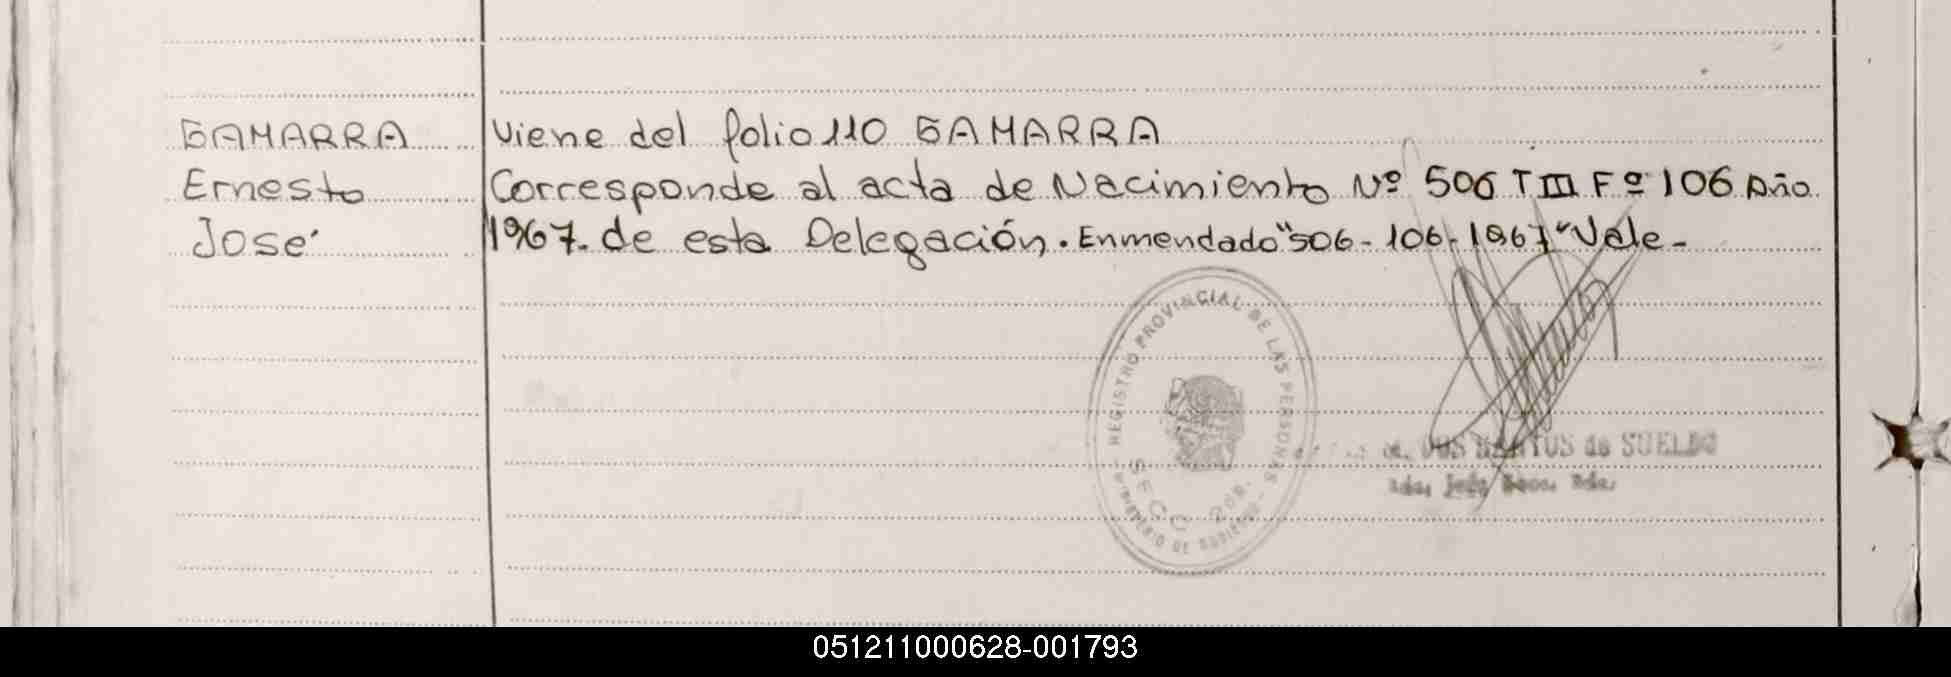 GAMARRA
Ernesto
José
Viene del folio 110 GAMARRA
Corresponde al acta de Nacimiento Nº 506 T III Fº 106 Año
1967. de esta Delegación. Enmendado "506 - 106 - 1967" Vale -
REGISTRO PROVINCIAL DE LAS PERSONAS
SECC. 2da.
MINISTERIO DE GOBIERNO
DOS SANTOS de SUELDO
051211000628-001793